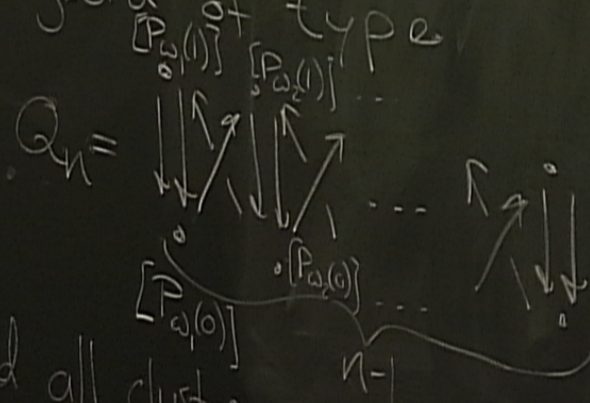 of type
[P_{ω_1}(1)] [P_{ω_2}(1)] ...
Q_n =
...
[P_{ω_1}(0)] [P_{ω_2}(0)] ...
n-1
all